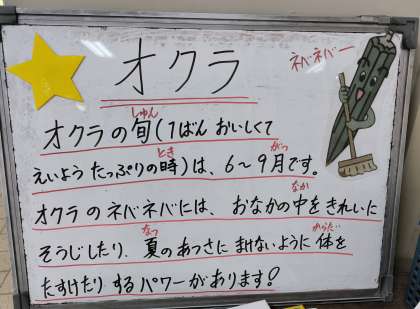 オクラ
ネバネバー
しゅん
オクラの旬(1ばん おいしくて
とき がつ
えいよう たっぷりの時)は、6〜9月です。
なか
オクラのネバネバには、おなかの中をきれいに
なつ からだ
そうじしたり、夏のあつさに まけないように 体を
たすけたり するパワーがあります!